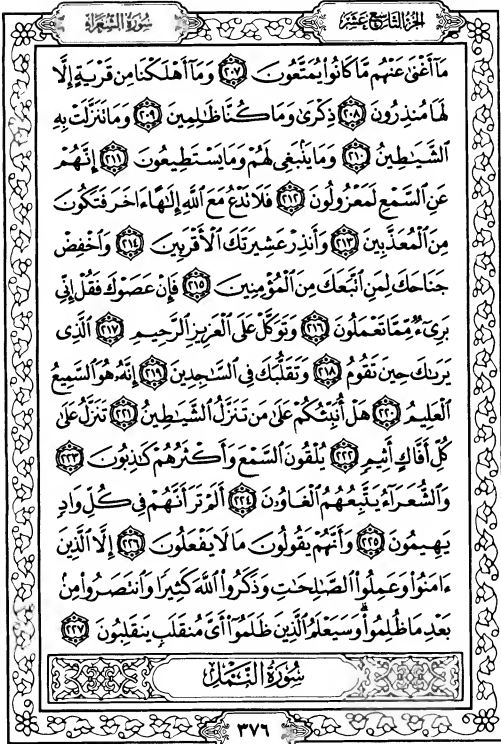 الجزء التاسع عشر
سورة الشعراء
مَآ أَغْنَىٰ عَنْهُم مَّا كَانُوا۟ يُمَتَّعُونَ ٢٠٧ وَمَآ أَهْلَكْنَا مِن قَرْيَةٍ إِلَّا
لَهَا مُنذِرُونَ ٢٠٨ ذِكْرَىٰ وَمَا كُنَّا ظَٰلِمِينَ ٢٠٩ وَمَا تَنَزَّلَتْ بِهِ
ٱلشَّيَٰطِينُ ٢١٠ وَمَا يَنۢبَغِى لَهُمْ وَمَا يَسْتَطِيعُونَ ٢١١ إِنَّهُمْ
عَنِ ٱلسَّمْعِ لَمَعْزُولُونَ ٢١٢ فَلَا تَدْعُ مَعَ ٱللَّهِ إِلَٰهًا ءَاخَرَ فَتَكُونَ
مِنَ ٱلْمُعَذَّبِينَ ٢١٣ وَأَنذِرْ عَشِيرَتَكَ ٱلْأَقْرَبِينَ ٢١٤ وَٱخْفِضْ
جَنَاحَكَ لِمَنِ ٱتَّبَعَكَ مِنَ ٱلْمُؤْمِنِينَ ٢١٥ فَإِنْ عَصَوْكَ فَقُلْ إِنِّى
بَرِىٓءٌ مِّمَّا تَعْمَلُونَ ٢١٦ وَتَوَكَّلْ عَلَى ٱلْعَزِيزِ ٱلرَّحِيمِ ٢١٧ ٱلَّذِى
يَرَىٰكَ حِينَ تَقُومُ ٢١٨ وَتَقَلُّبَكَ فِى ٱلسَّٰجِدِينَ ٢١٩ إِنَّهُۥ هُوَ ٱلسَّمِيعُ
ٱلْعَلِيمُ ٢٢٠ هَلْ أُنَبِّئُكُمْ عَلَىٰ مَن تَنَزَّلُ ٱلشَّيَٰطِينُ ٢٢١ تَنَزَّلُ عَلَىٰ
كُلِّ أَفَّاكٍ أَثِيمٍ ٢٢٢ يُلْقُونَ ٱلسَّمْعَ وَأَكْثَرُهُمْ كَٰذِبُونَ ٢٢٣
وَٱلشُّعَرَآءُ يَتَّبِعُهُمُ ٱلْغَاوُۥنَ ٢٢٤ أَلَمْ تَرَ أَنَّهُمْ فِى كُلِّ وَادٍ
يَهِيمُونَ ٢٢٥ وَأَنَّهُمْ يَقُولُونَ مَا لَا يَفْعَلُونَ ٢٢٦ إِلَّا ٱلَّذِينَ
ءَامَنُوا۟ وَعَمِلُوا۟ ٱلصَّٰلِحَٰتِ وَذَكَرُوا۟ ٱللَّهَ كَثِيرًا وَٱنتَصَرُوا۟ مِنۢ
بَعْدِ مَا ظُلِمُوا۟ ۗ وَسَيَعْلَمُ ٱلَّذِينَ ظَلَمُوٓا۟ أَىَّ مُنقَلَبٍ يَنقَلِبُونَ ٢٢٧
سورة النمل
٣٧٦